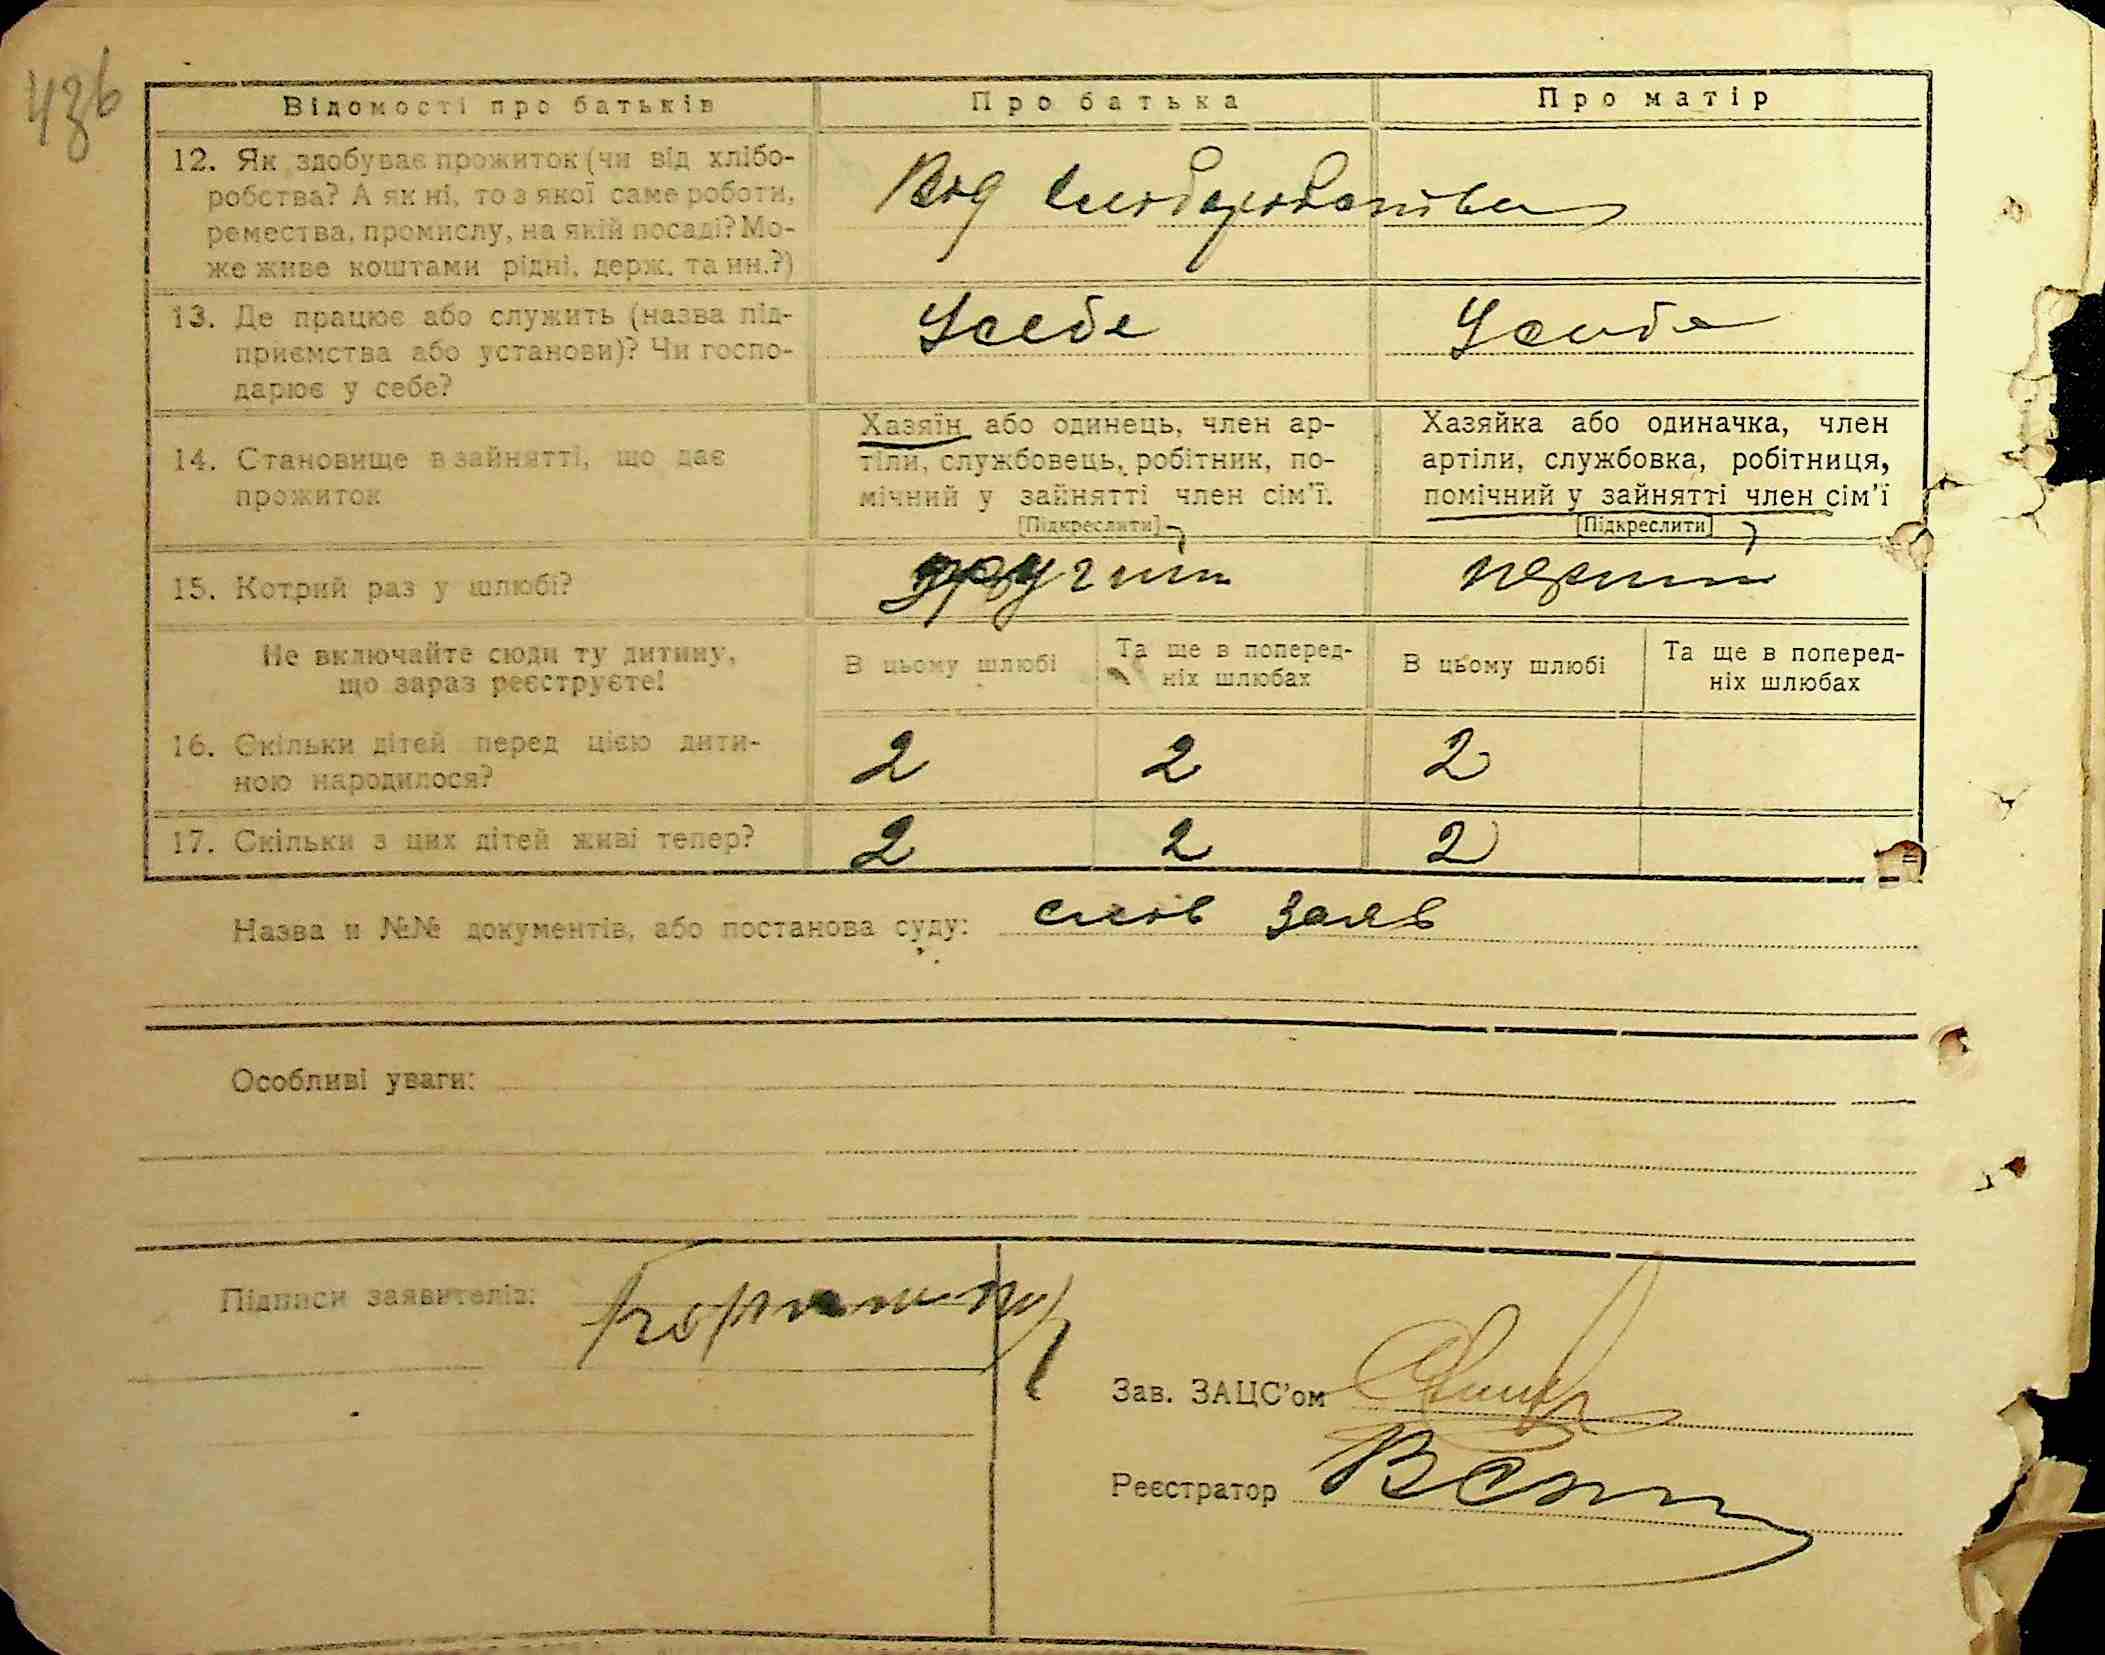 43б
Відомості про батьків Про батька Про матір
12. Як здобуває прожиток (чи від хлібо-
робства? А як ні, то з якої саме роботи,
ремества, промислу, на якій посаді? Мо-
же живе коштами рідні, держ. та ин.?)
Від
13. Де працює або служить (назва під-
приємства або установи)? Чи госпо-
дарює у себе?
Усебе Усебе
14. Становище в зайнятті, що дає
прожиток
Хазяїн або одинець, член ар-
тіли, службовець, робітник, по-
мічний у зайнятті член сім'ї.
[Підкреслити]
Хазяйка або одиначка, член
артіли, службовка, робітниця,
помічний у зайнятті член сім'ї
[Підкреслити]
15. Котрий раз у шлюбі? другий перший
Не включайте сюди ту дитину,
що зараз реєструєте!
В цьому шлюбі
Та ще в поперед-
ніх шлюбах
В цьому шлюбі
Та ще в поперед-
ніх шлюбах
16. Скільки дітей перед цією дити-
ною народилося?
2 2 2
17. Скільки з цих дітей живі тепер? 2 2 2
Назва и №№ документів, або постанова суду: слов заяв
Особливі уваги:
Підписи заявителів:
Зав. ЗАЦС'ом
Реєстратор